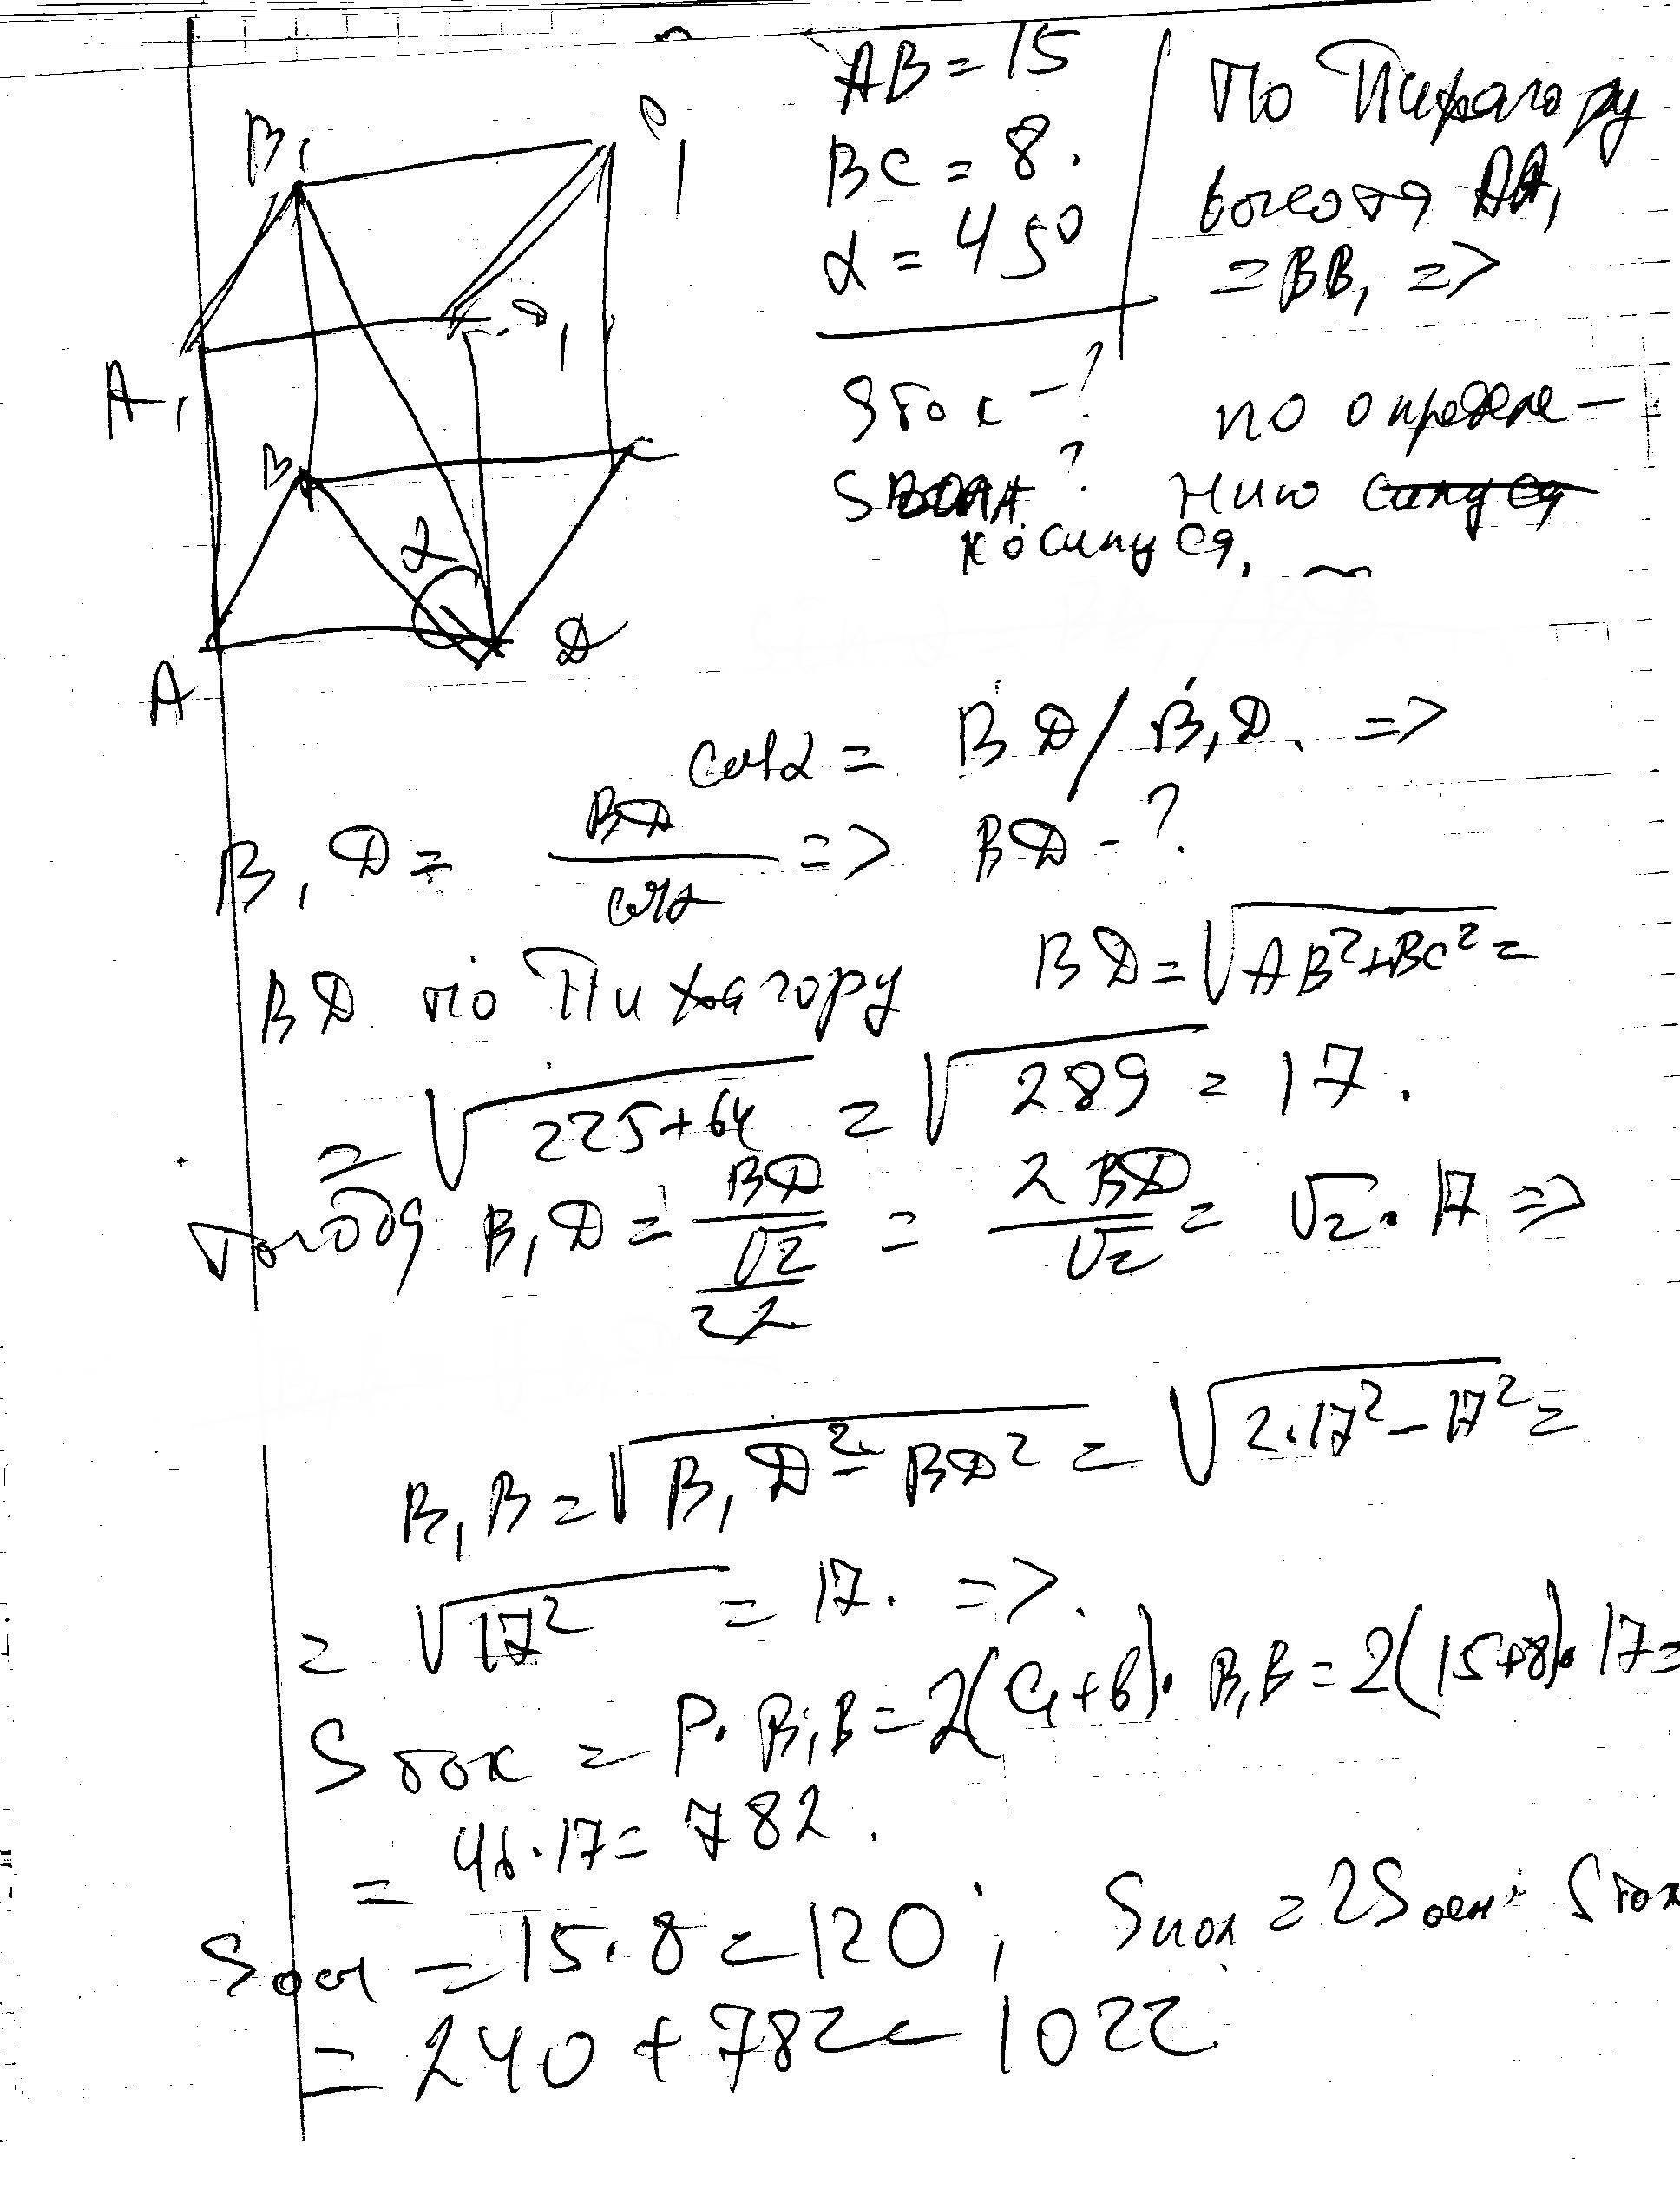 B₁
C₁
A₁
D₁
B
C
α
A
D
AB = 15
BC = 8.
α = 45°
Sбок - ?
Sполн ?
По Пифагору
высота AA₁
= BB₁ =>
по определе-
нию синуса
косинуса.
cosα = BD / B₁D. =>
B₁D = BD/cosα => BD - ?
BD по Пифагору BD = √(AB²+BC²) =
= √(225+64) = √289 = 17.
тогда B₁D = BD/(√2/2) = 2BD/√2 = √2 · 17 =>
B₁B = √(B₁D² - BD²) = √(2·17² - 17²) =
= √17² = 17. =>.
Sбок = P · B₁B = 2(a+b) · B₁B = 2(15+8) · 17 =
= 46·17 = 782.
Sосн = 15·8 = 120; Sпол = 2Sосн + Sбок
= 240 + 782 = 1022